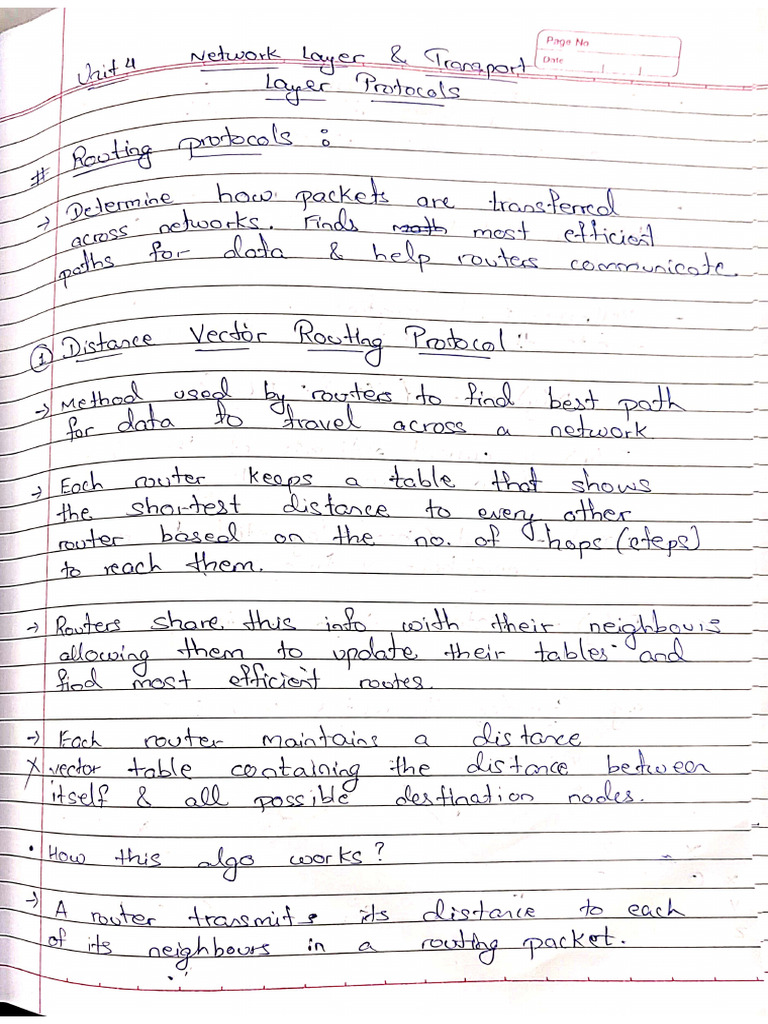 Page No
Date
Unit 4 Network Layer & Transport
Layer Protocols
# Routing protocols :
→ Determine how packets are transferred
across networks. Finds most efficient
paths for data & help routers communicate.
① Distance Vector Routing Protocol :
→ Method used by routers to find best path
for data to travel across a network
→ Each router keeps a table that shows
the shortest distance to every other
router based on the no. of hops (steps)
to reach them.
→ Routers share this info with their neighbours
allowing them to update their tables and
find most efficient routes.
→ Each router maintains a distance
X vector table containing the distance between
itself & all possible destination nodes.
• How this algo works?
→ A router transmits its distance to each
of its neighbours in a routing packet.